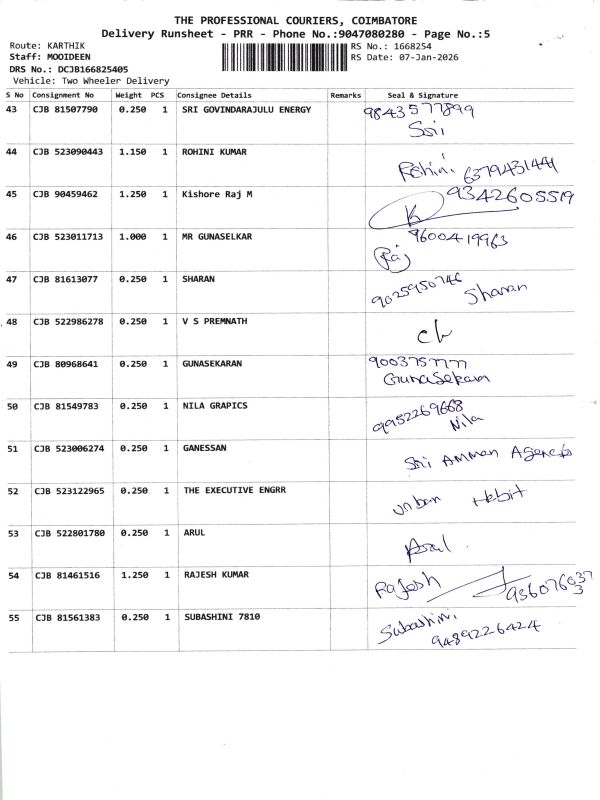 THE PROFESSIONAL COURIERS, COIMBATORE
Delivery Runsheet - PRR - Phone No.:9047080280 - Page No.:5
Route: KARTHIK RS No.: 1668254
Staff: MOOIDEEN RS Date: 07-Jan-2026
DRS No.: DCJB166825405
Vehicle: Two Wheeler Delivery
S No Consignment No Weight PCS Consignee Details Remarks Seal & Signature
43 CJB 81507790 0.250 1 SRI GOVINDARAJULU ENERGY 9843577899
Sri
44 CJB 523090443 1.150 1 ROHINI KUMAR
Rohini 6379431441
45 CJB 90459462 1.250 1 Kishore Raj M 9342605519
46 CJB 523011713 1.000 1 MR GUNASELKAR 9600419963
Raj
47 CJB 81613077 0.250 1 SHARAN
9025950746 Sharan
48 CJB 522986278 0.250 1 V S PREMNATH
49 CJB 80968641 0.250 1 GUNASEKARAN 9003757777
GunaSekaran
50 CJB 81549783 0.250 1 NILA GRAPICS
9952269668
Nila
51 CJB 523006274 0.250 1 GANESSAN
Sri Amman
52 CJB 523122965 0.250 1 THE EXECUTIVE ENGRR
urban
53 CJB 522801780 0.250 1 ARUL
54 CJB 81461516 1.250 1 RAJESH KUMAR
Rajesh
55 CJB 81561383 0.250 1 SUBASHINI 7810
Subashini
9489226424